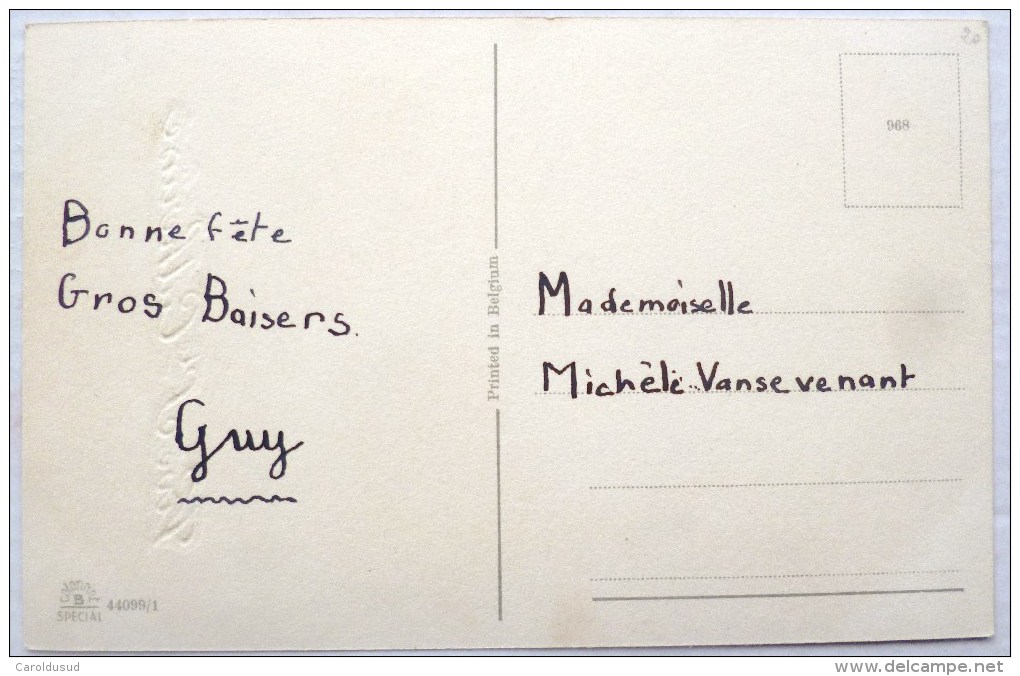 20
968
Bonne fête
Gros Baisers.
Guy
Printed in Belgium
Mademoiselle
Michèle Vansevenant
B
SPECIAL
44099/1
Caroldusud
www.delcampe.net